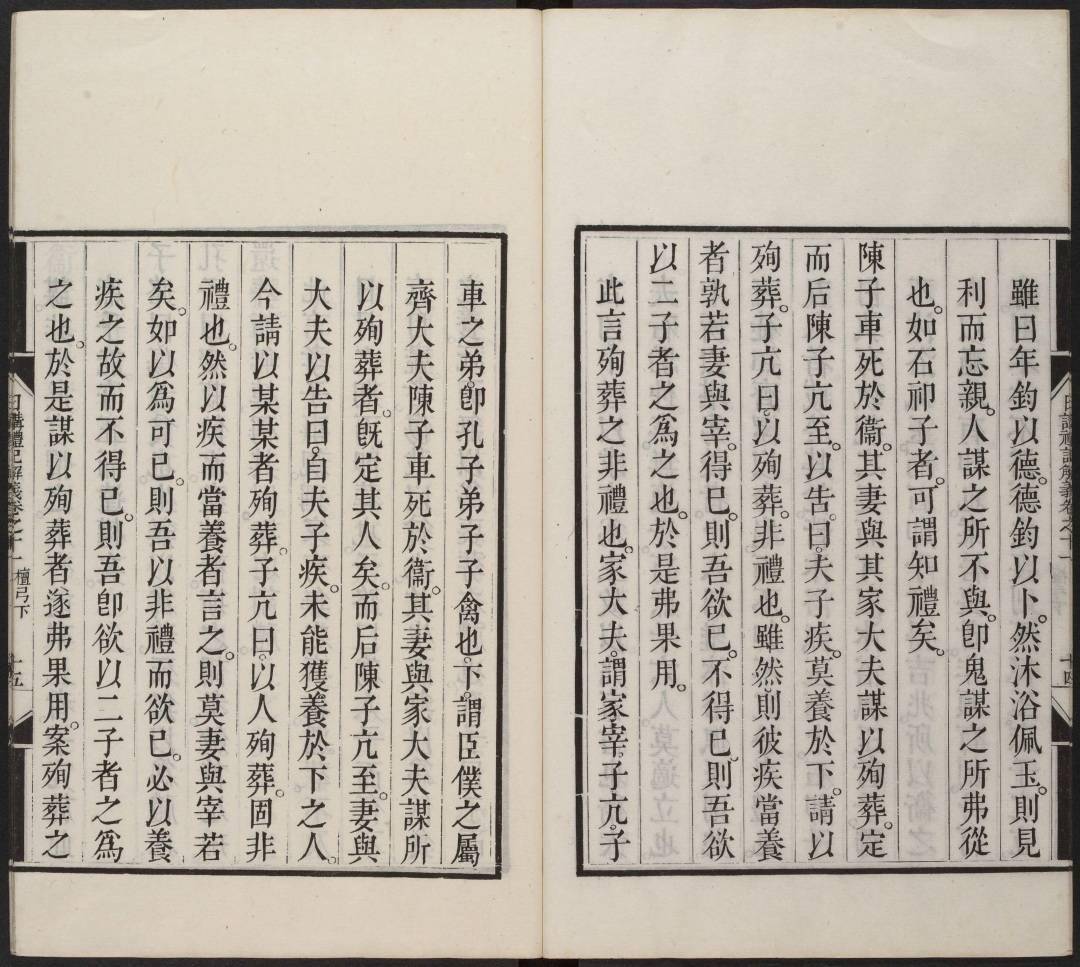 雖曰年鈞以德。德鈞以卜。然沐浴佩玉。則見
利而忘親。人謀之所不與。卽鬼謀之所弗從
也。如石祁子者。可謂知禮矣。
陳子車死於衞。其妻與其家大夫謀以殉葬。定
而后陳子亢至。以告。曰。夫子疾。莫養於下。請以
殉葬。子亢曰。以殉葬。非禮也。雖然。則彼疾當養
者孰若妻與宰。得已。則吾欲已。不得已。則吾欲
以二子者之爲之也。於是弗果用。
此言殉葬之非禮也。家大夫。謂家宰。子亢。子
車之弟。卽孔子弟子子禽也。下。謂臣僕之屬
齊大夫陳子車死於衞。其妻與家大夫謀所
以殉葬者。旣定其人矣。而后陳子亢至。妻與
大夫以告曰。自夫子疾。未能獲養於下之人。
今請以某某者殉葬。子亢曰。以人殉葬。固非
禮也。然以疾而當養者言之。則莫妻與宰若
矣。如以爲可已。則吾以非禮而欲已。必以養
疾之故而不得已。則吾卽欲以二子者之爲
之也。於是謀以殉葬者遂弗果用。案殉葬之
日講禮記解義卷之十一 檀弓下 十五